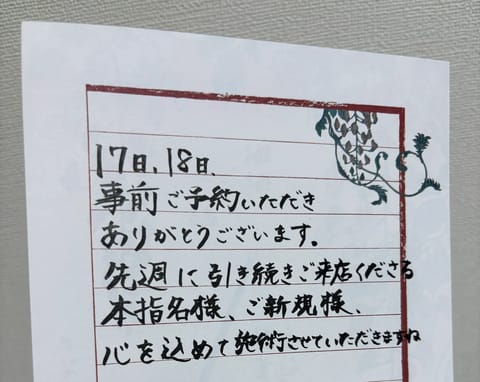 17日,18日、
事前ご予約いただき
ありがとうございます。
先週に引き続きご来店くださる
本指名様、ご新規様、
心を込めて施術させていただきますね